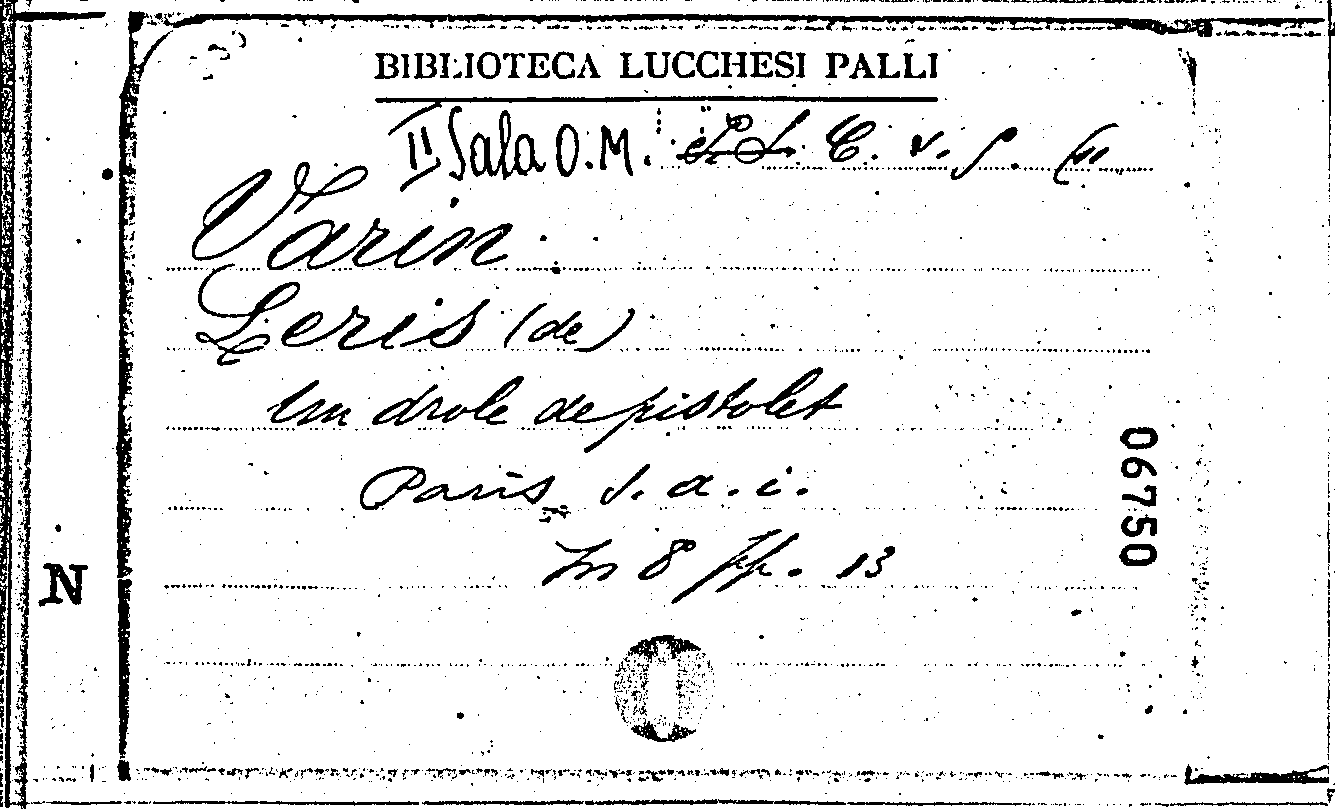 BIBLIOTECA LUCCHESI PALLI
II Sala O.M. C. v. 5.
Varin
Leris (de)
Un drole de pistolet
Paris s. a. i.
In 8 pp. 13
06750
N